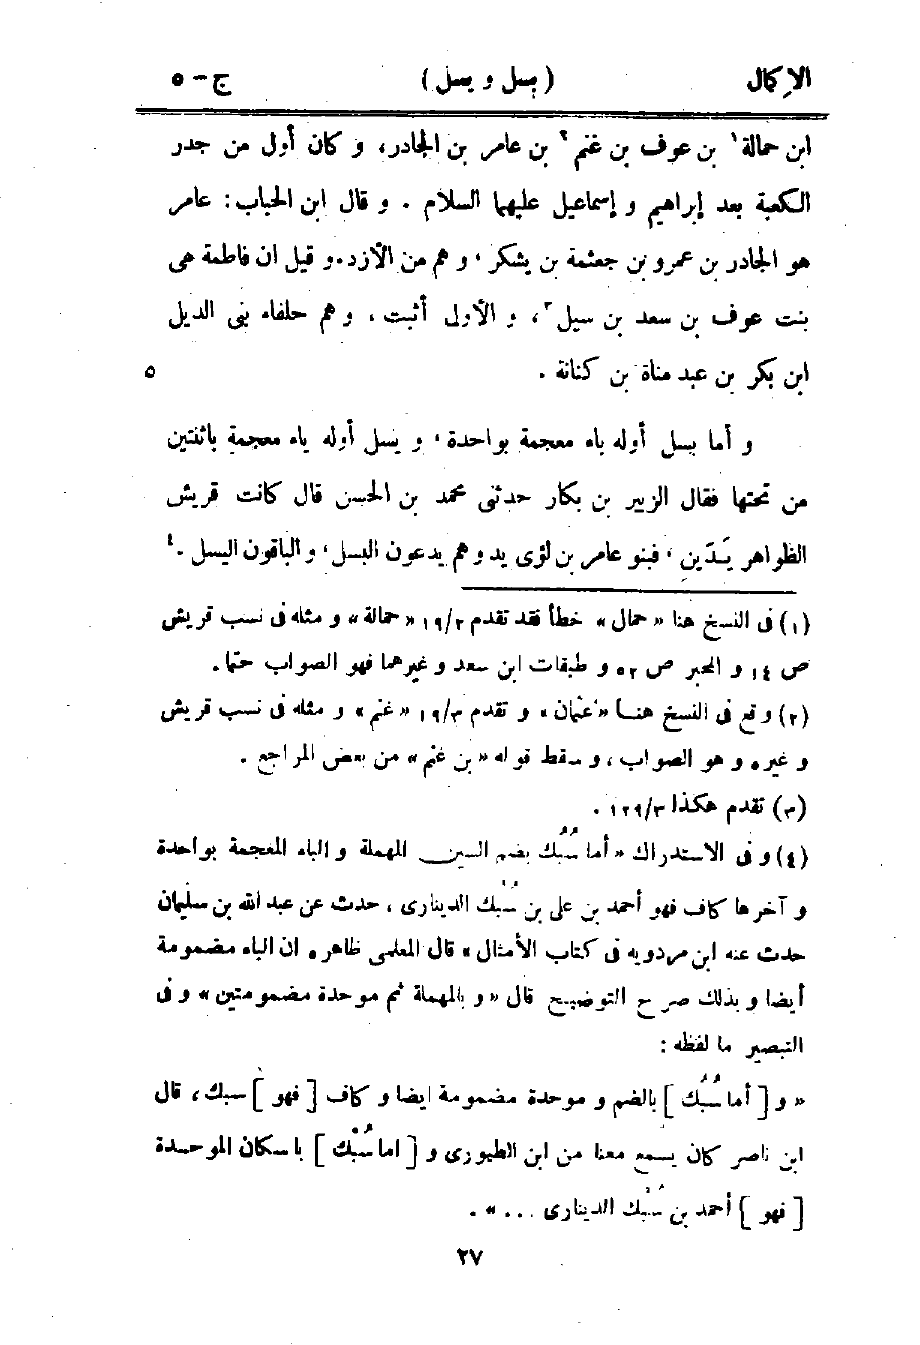 الإكمال ( بسل و يسل ) ج - ٥
ابن حمالة١ بن عوف بن غنم٢ بن عامر بن الجادر، و كان أول من جدر
الكعبة بعد إبراهيم و إسماعيل عليهما السلام . و قال ابن الحباب : عامر
هو الجادر بن عمرو بن جعثمة بن يشكر ، و هم من الأزد . و قيل ان فاطمة هى
بنت عوف بن سعد بن سيل٣ ، و الأولى أثبت ، و هم حلفاء بنى الديل
ابن بكر بن عبد مناة بن كنانة . ٥
و أما بسل أوله باء معجمة بواحدة ، و يسل أوله ياء معجمة باثنتين
من تحتها فقال الزبير بن بكار حدثنى محمد بن الحسن قال كانت قريش
الظواهر يَدَين ، فبنو عامر بن لؤى يد و هم يدعون البسل ، و الباقون اليسل .٤
(١) فى النسخ هنا « حمال » خطأ فقد تقدم ١٩/٢ « حمالة » و مثله فى نسب قريش
ص ١٤ و المحبر ص ٥٢ و طبقات ابن سعد و غيرهما فهو الصواب حتما .
(٢) وقع فى النسخ هنـا « عثمان » و تقدم ١٩/٣ « غنم » و مثله فى نسب قريش
و غيره و هو الصواب ، و سقط قوله « بن غنم » من بعض المراجع .
(٣) تقدم هكذا ١٢٩/٣ .
(٤) و فى الاستدراك « أما سُبُك بضم السين المهملة و الباء المعجمة بواحدة
و آخرها كاف فهو أحمد بن على بن سُبُك الدينارى ، حدث عن عبد الله بن سليمان
حدث عنه ابن مردويه فى كتاب الأمثال » قال المعلمى ظاهره ان الباء مضمومة
أيضا و بذلك صرح التوضيح قال « و بالمهملة ثم موحدة مضمومتين » و فى
التبصير ما لفظه :
« و [ أما سُبُك ] بالضم و موحدة مضمومة ايضا و كاف [ فهو ] سبك ، قال
ابن ناصر كان يسمع معنا من ابن الطيورى و [ اما سُبْك ] باسكان الموحـدة
[ فهو ] أحمد بن سُبْك الدينارى ... » .
٢٧